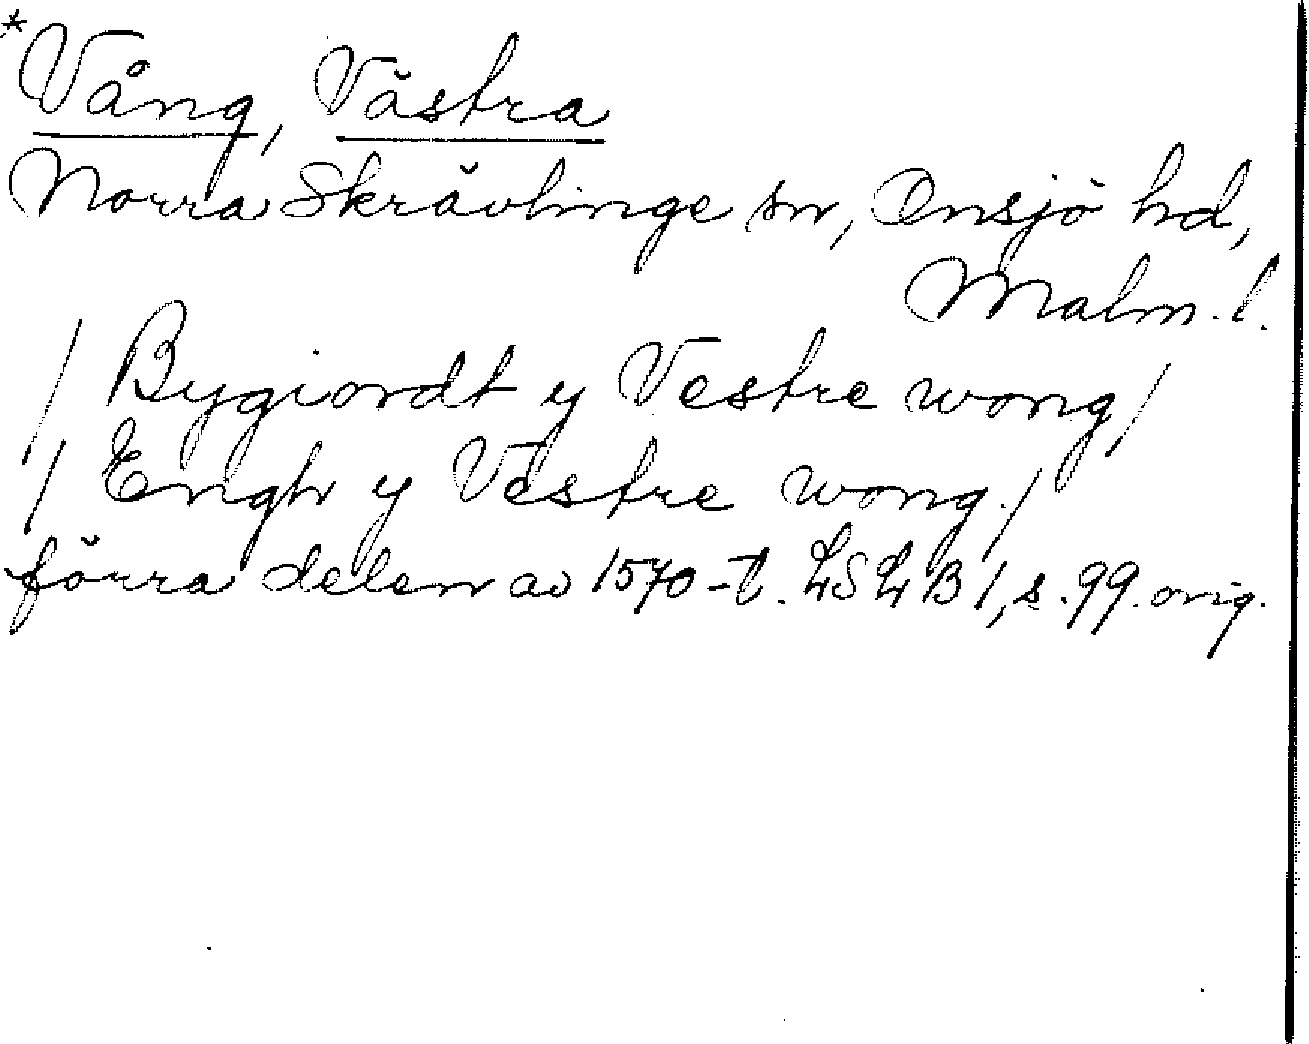 *Vång, Västra
Norra Skrävlinge sn, Onsjö hd,
Malm. l.
/ Bygiordt y Vestre wong /
/ Engh y Vestre wong. /
förra delen av 1570-t. LSLB 1, s. 99. orig.